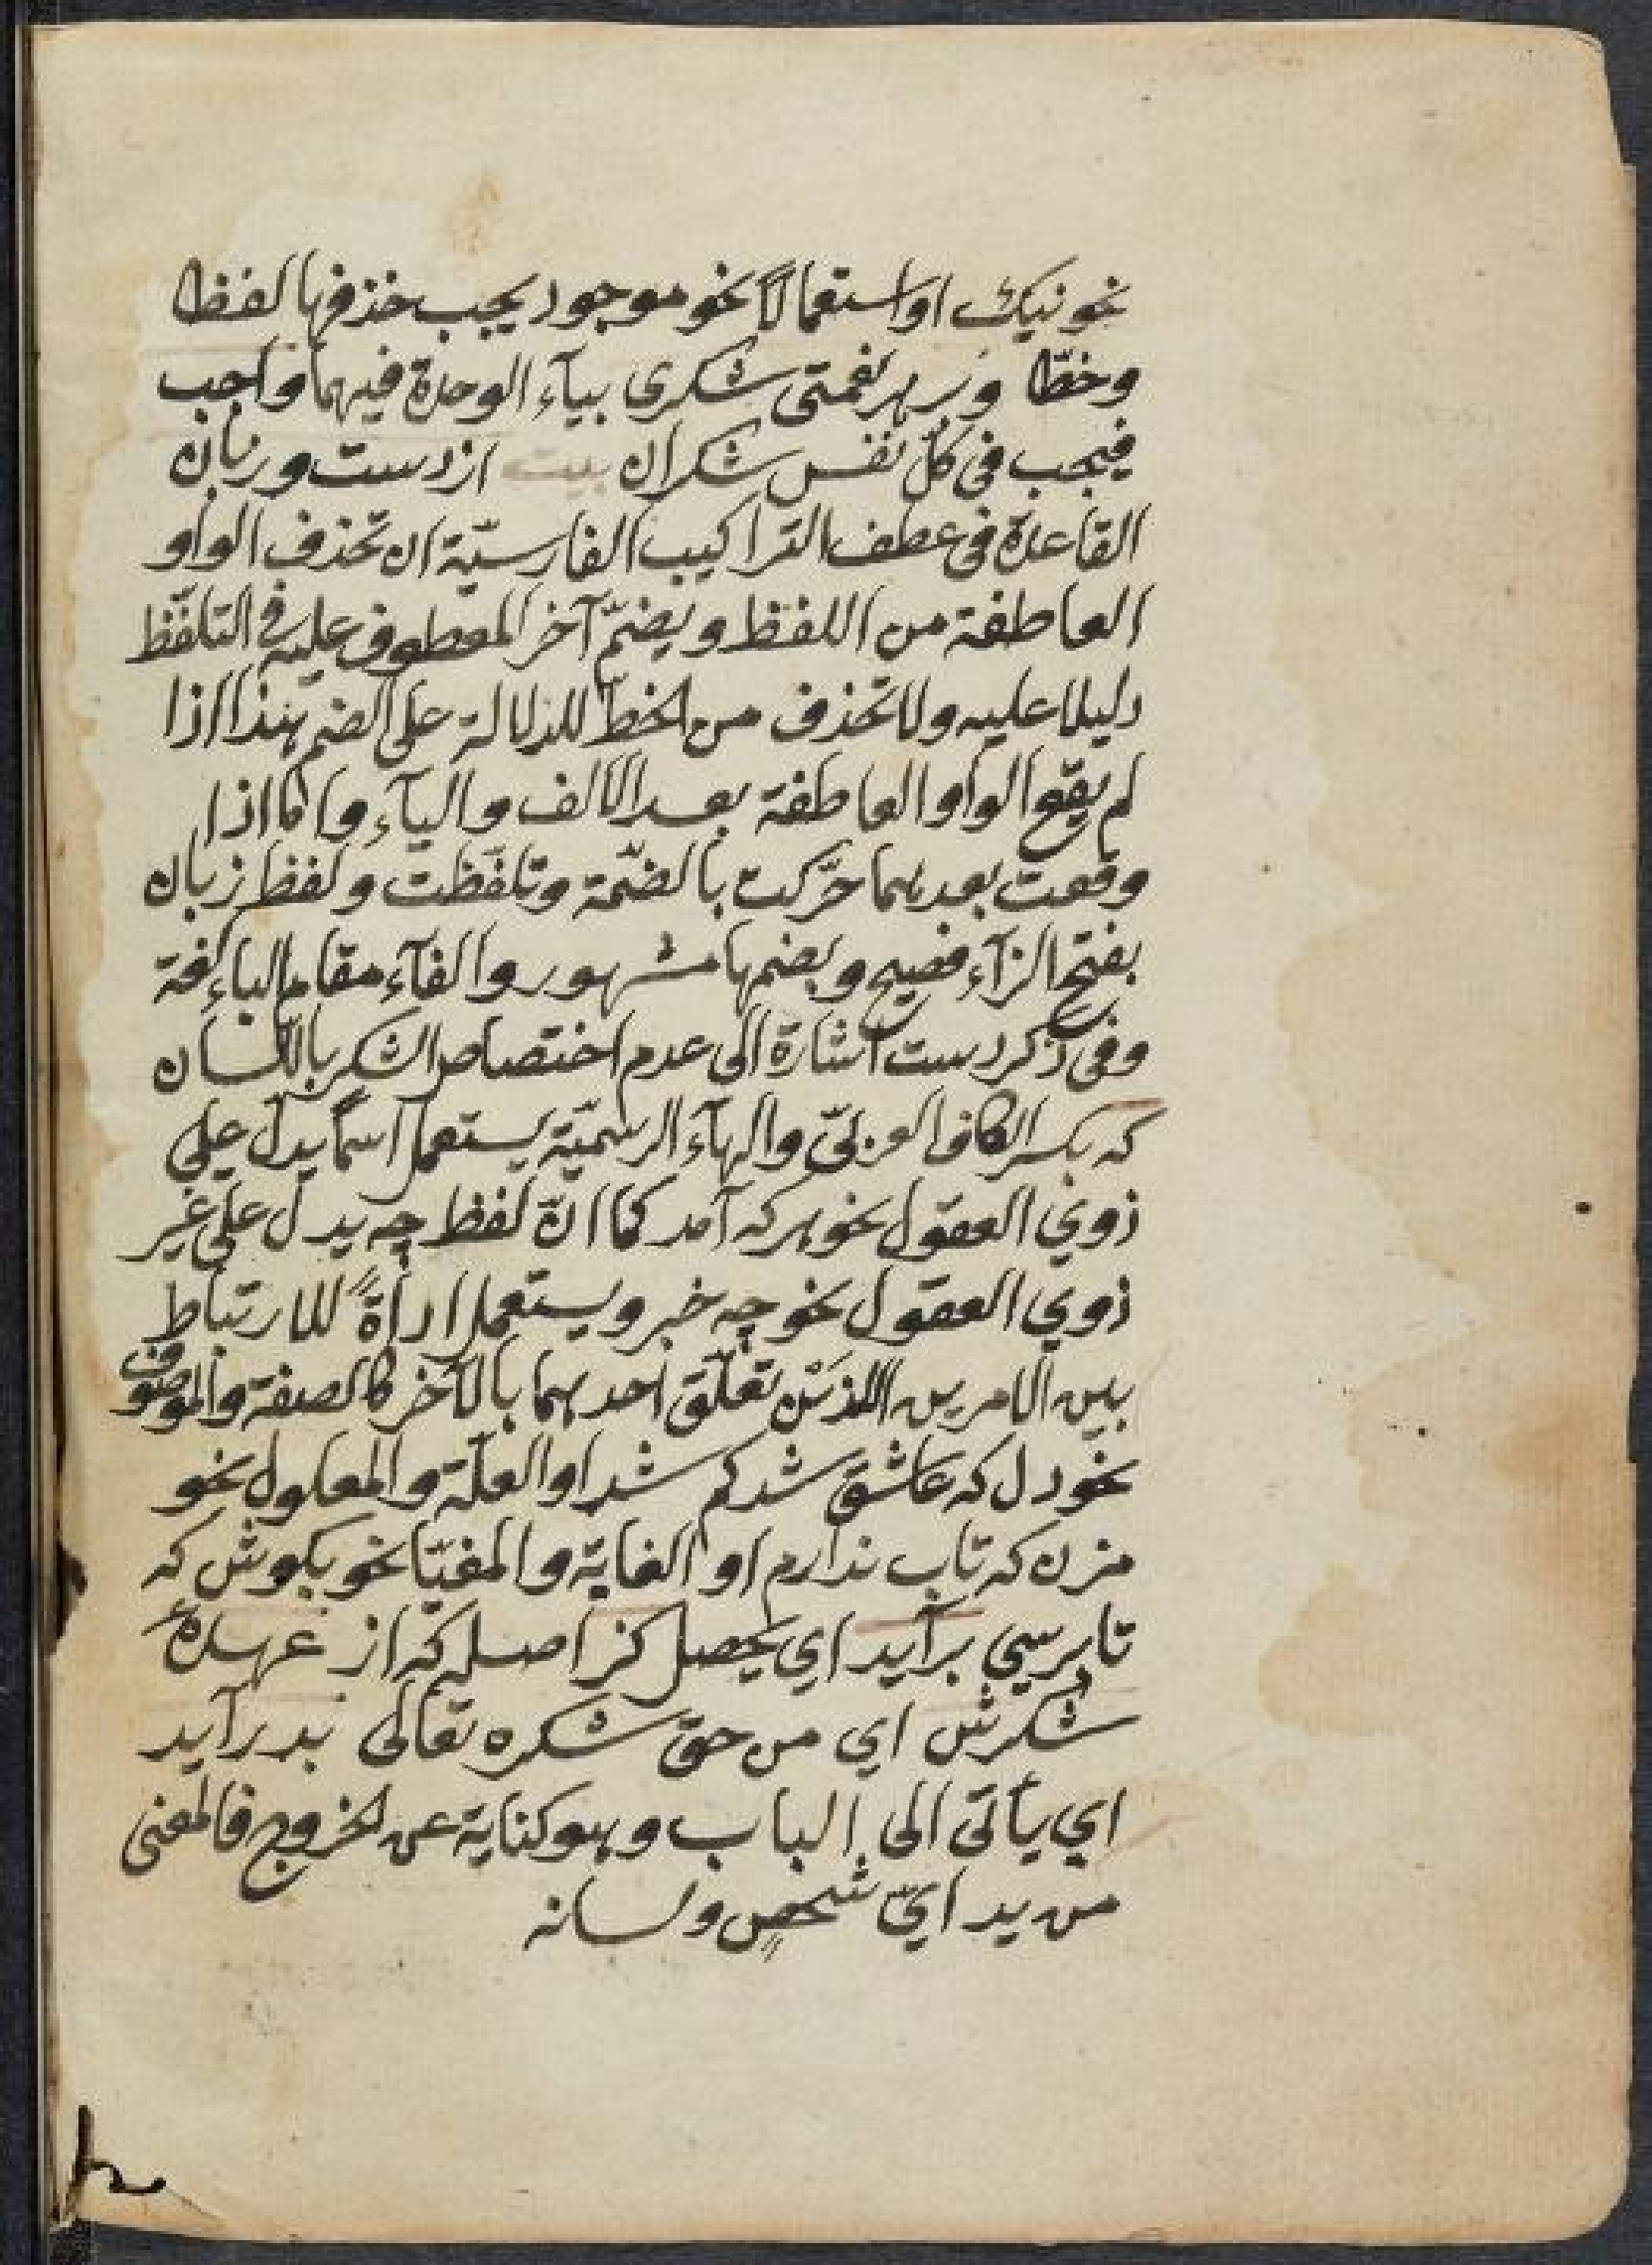 نحو نيك او استعمالًا نحو موجود يجب حذفها لفظا
وخطّا وبهر نعمتى شكرى بيآء الوحدة فيهما واجب
فيجب فى كلّ نفس شكران بيت از دست وزبان
القاعدة فى عطف التراكيب الفارسيّة ان تحذف الواو
العاطفة من اللفظ ويضمّ آخر المعطوف عليه فى التلفّظ
دليلا عليه ولا تحذف من الخطّ للدلالة على الضم هذا اذا
لم يقع الواو العاطفة بعد الالف واليآء وامّا اذا
وقعت بعدهما حرّكت بالضمّة وتلفّظت ولفظ زبان
بفتح الزآء فصيح وبضمها مشهور والفآء مقام الباء لغة
وفى ذكر دست اشارة الى عدم اختصاص الشكر باللسان
كه بكسر الكاف العربىّ والهآء الرسميّة يستعمل اسمًا يدل على
ذوي العقول نحو هر كه آمد كما انّ لفظ چه يدل على غير
ذوي العقول نحو چه خبر ويستعمل اداةً للارتباط
بين الامرين اللذَين تعلّق احدهما بالآخر كالصفة والموصوف
نحو دل كه عاشق شد كم شد او العلّة والمعلول نحو
مزن كه تاب ندارم او الغاية والمغيّا نحو بكوش كه
تا برسي برآيد اي يحصل كز اصله كه از عهدهٔ
شكرش اي من حقّ شكره تعالى بدر آيد
اي يأتى الى الباب وهو كناية عن الخروج فالمعنى
من يد ايّ شخصٍ ولسانه